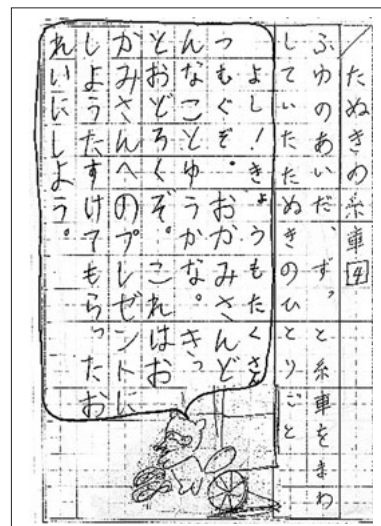 たぬきの糸車 4
ふゆのあいだ、ずっと糸車をまわ
していたたぬきのひとりごと
よし!きょうもたくさん
つむぐぞ。おかみさんど
んなことゆうかな。きっ
とおどろくぞ。これはお
かみさんへのプレゼントに
しようたすけてもらったお
れいにしよう。